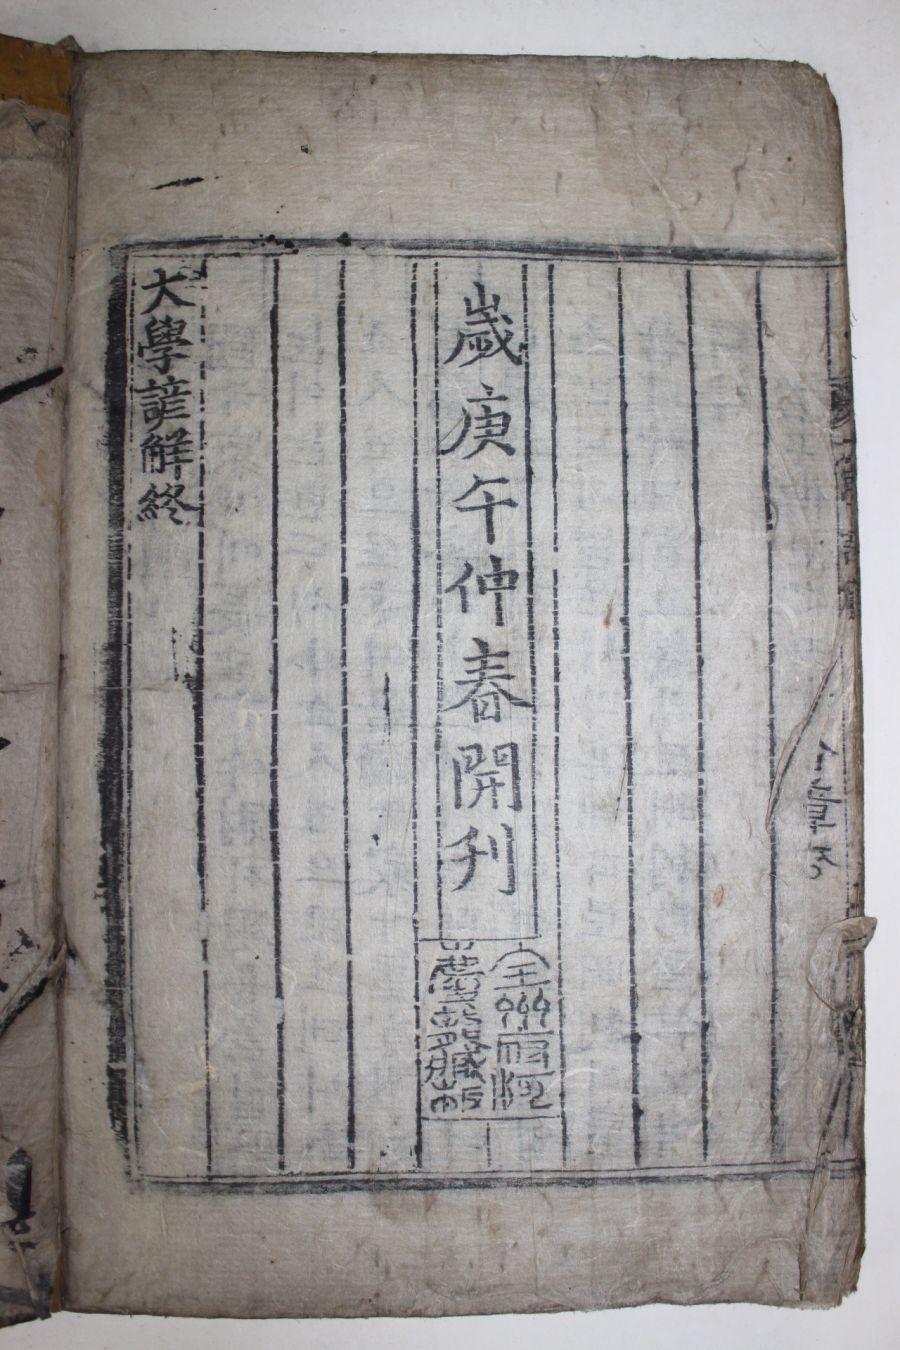 歲庚午仲春開刊
全州府河
慶龍藏板
大學諺解終